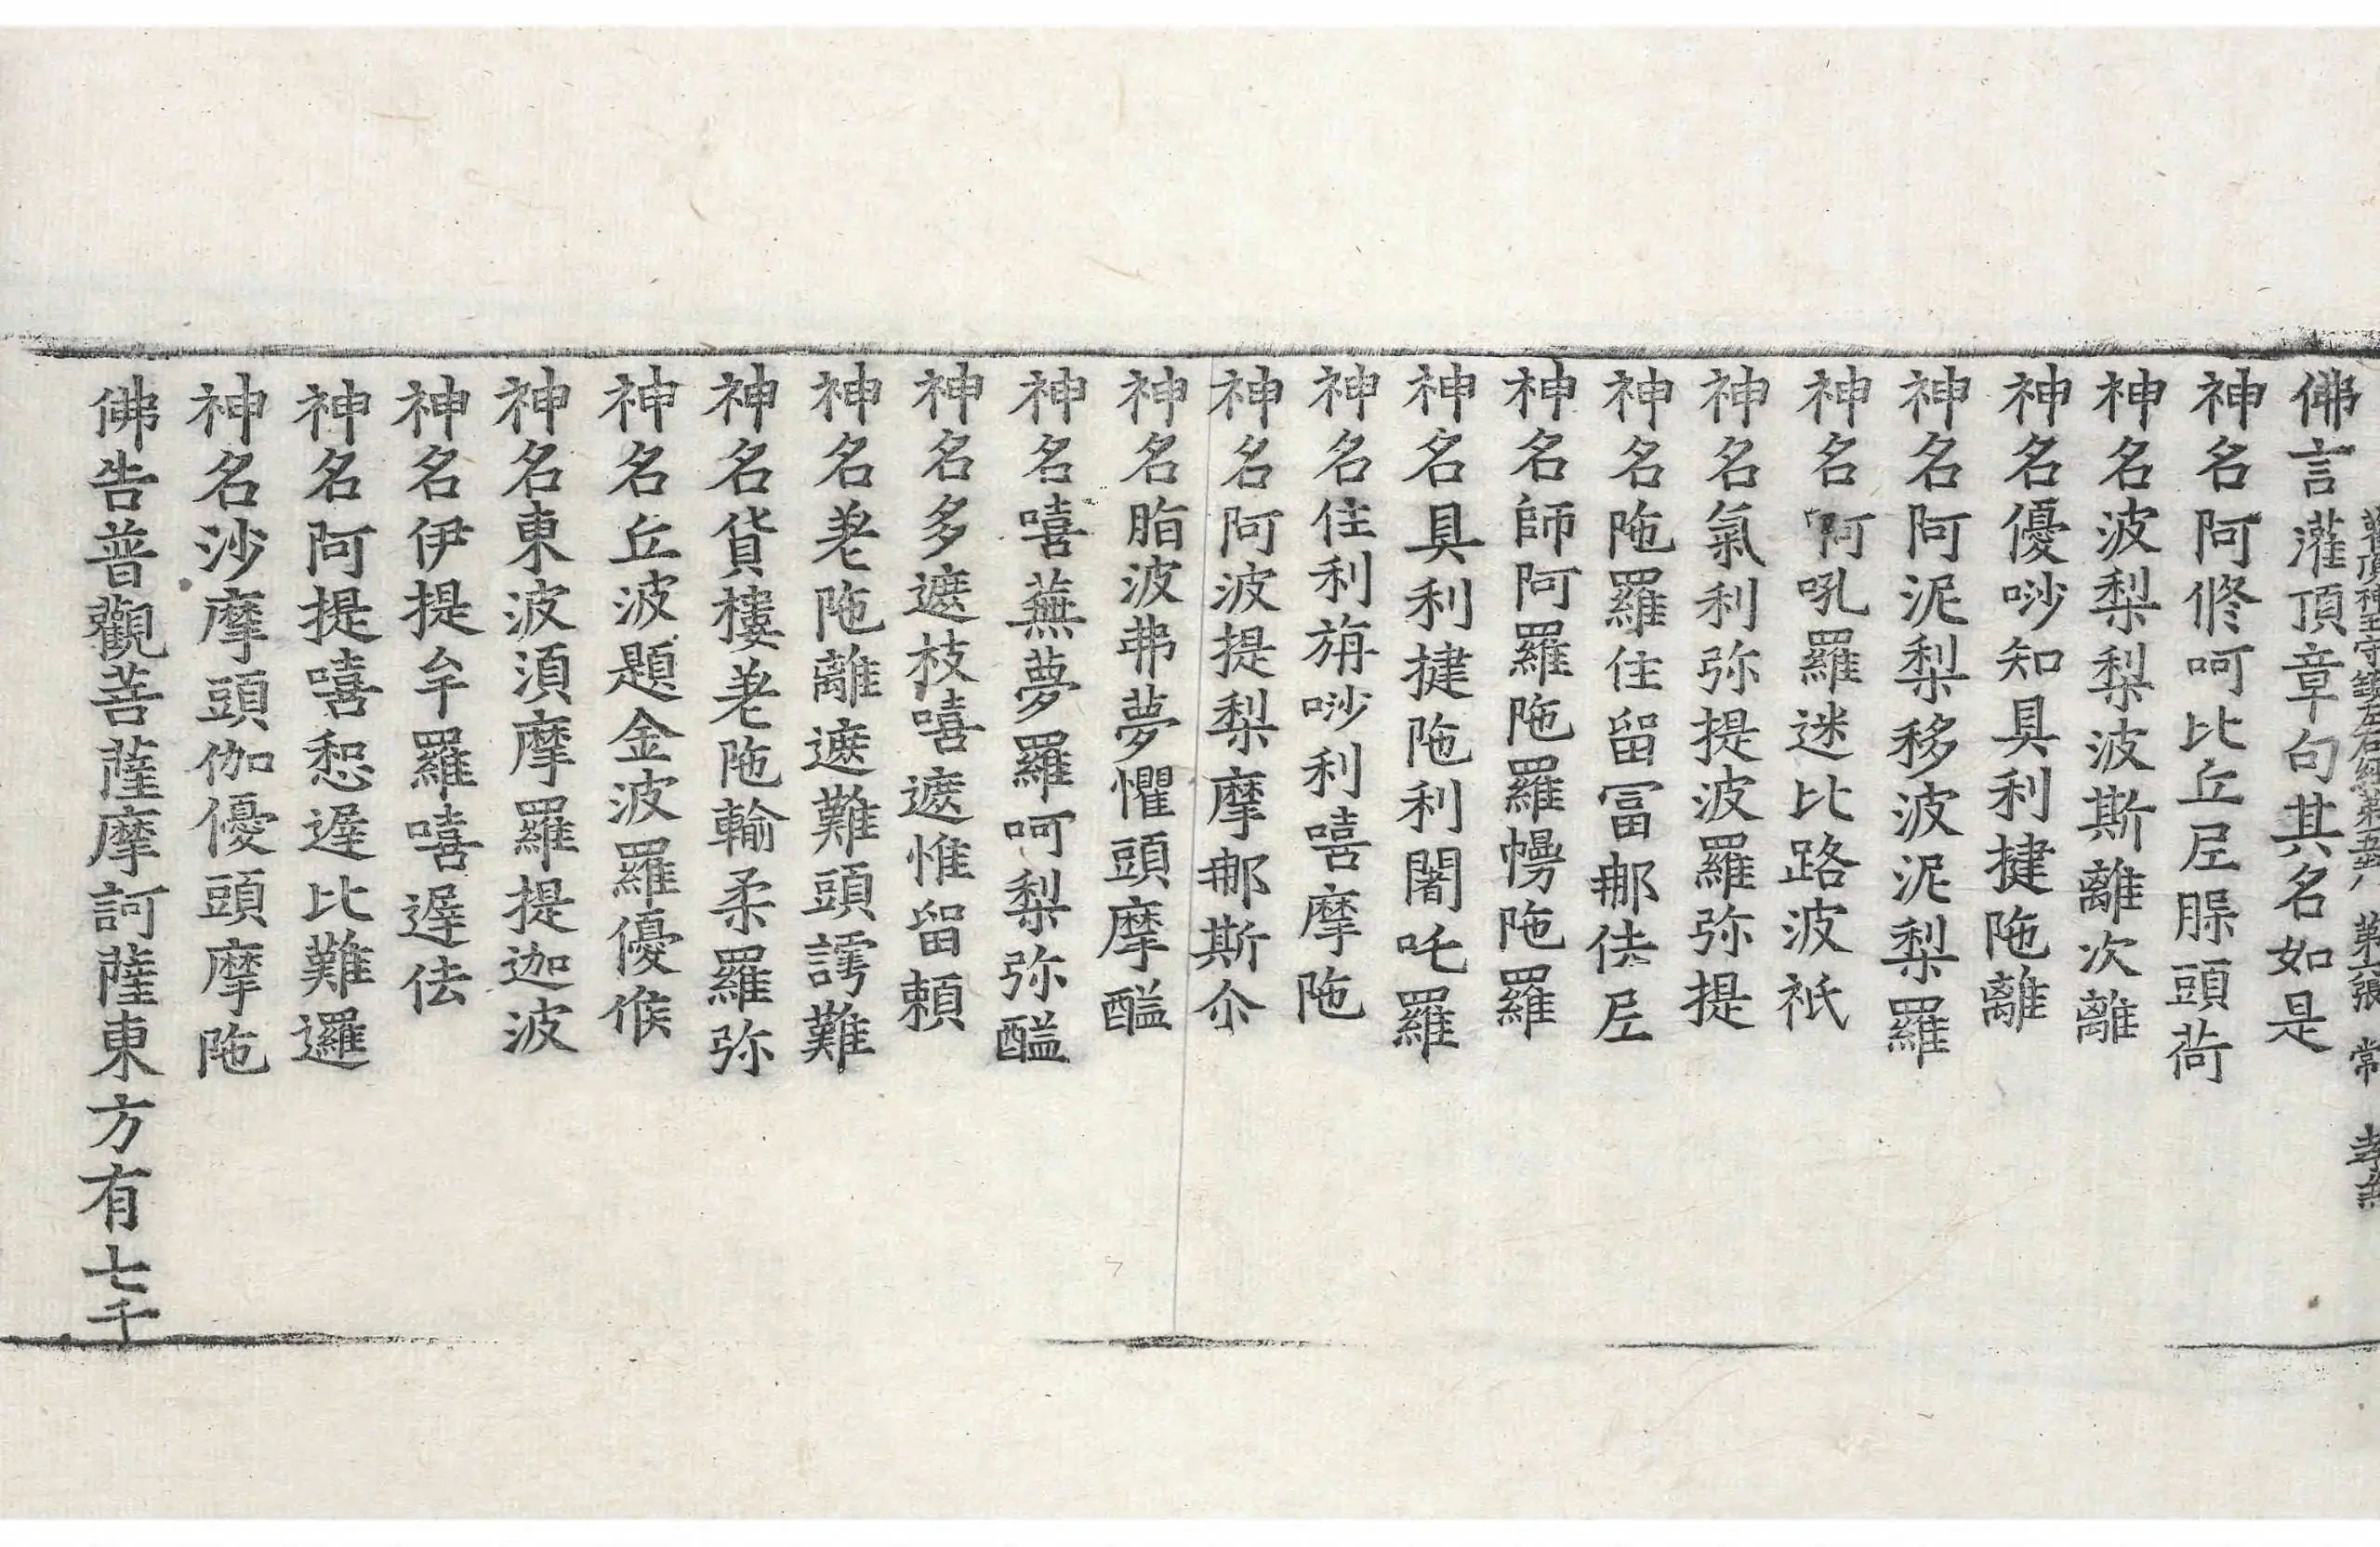 灌頂神王守鎮左右經 第五 第六張 常
佛言灌頂章句其名如是
神名阿脩呵比丘尼脲頭荷
神名波梨梨波斯離次離
神名優唦知具利揵陁離
神名阿泥梨移波泥梨羅
神名阿吼羅迷比路波祇
神名氣利弥提波羅弥提
神名陁羅住留冨那佉尼
神名師阿羅陁羅幔陁羅
神名具利揵陁利闍吒羅
神名住利旃唦利嘻摩陁
神名阿波提梨摩那斯尒
神名脂波弗夢懼頭摩醯
神名嘻蕪夢羅呵梨弥醯
神名多遮枝嘻遮惟留頼
神名耄陁離遮難頭謣難
神名貨樓耄陁輸柔羅弥
神名丘波題金波羅優候
神名東波湏摩羅提迦波
神名伊提牟羅嘻遟佉
神名阿提嘻惒遟比難邏
神名沙摩頭伽優頭摩陁
佛告普觀菩薩摩訶薩東方有七千